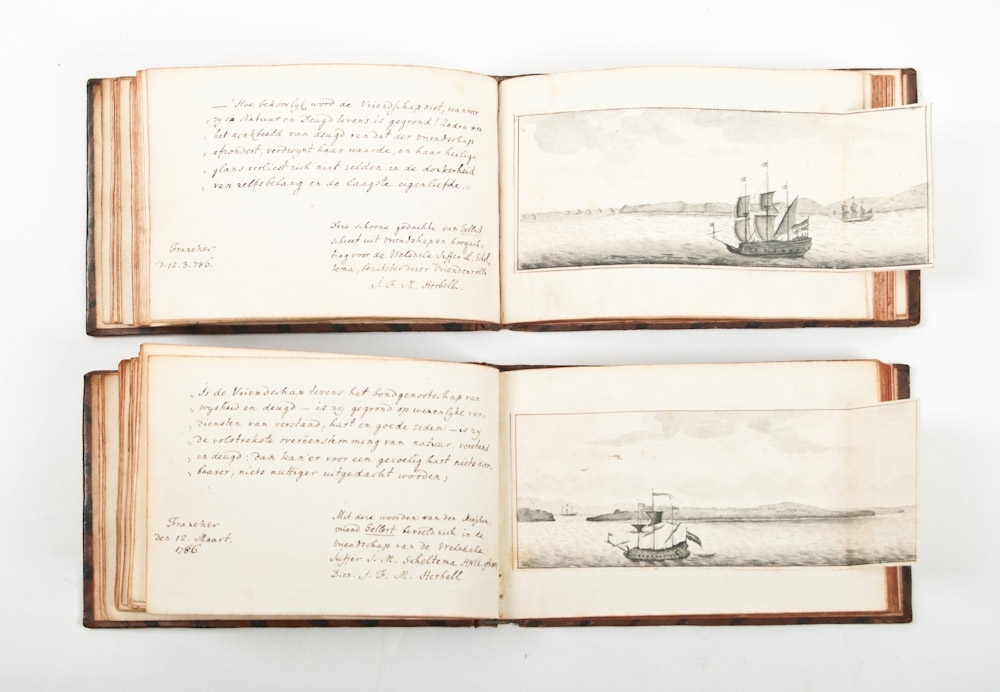 — "Hoe bekoorlyk word de Vriendschap niet, wanneer
„ zy op Natuur en Deugd tevens is gegrond! Zodra men
„ het denkbeeld van deugd van dat der vriendschap
„ afzondert, verdwynt haar waarde, en haar heilige
„ glans verliest zich niet zelden in de donkerheid
„ van zelfsbelang en de laagste eigenliefde.„
Deze schoone gedachte van Gellert
schreef uit vriendschap en hoogach-
ting voor de Weledele Juffer L. Schel-
tema, bezitster dezer Vriendenrolle
J. F. M. Herbell.
Franeker
d. 12. 3. 786.
„ Is de Vriendschap tevens het bondgenootschap van
„ wysheid en deugd — is zy gegrond op wezenlyke ver-
„ diensten van verstand, hart en goede zeden — is zy
„ de volstrekste overéénstemming van natuur, verstand
„ en deugd: dan kan'er voor een gevoelig hart niets dier-
„ baarer, niets nuttiger uitgedacht worden„
Met deze woorden van den
vriend Gellert beveelt zich in de
vriendschap van de Weledele
Juffer J. M. Scheltema
Dien. J. F. M. Herbell
Franeker
den 12. Maart.
1786